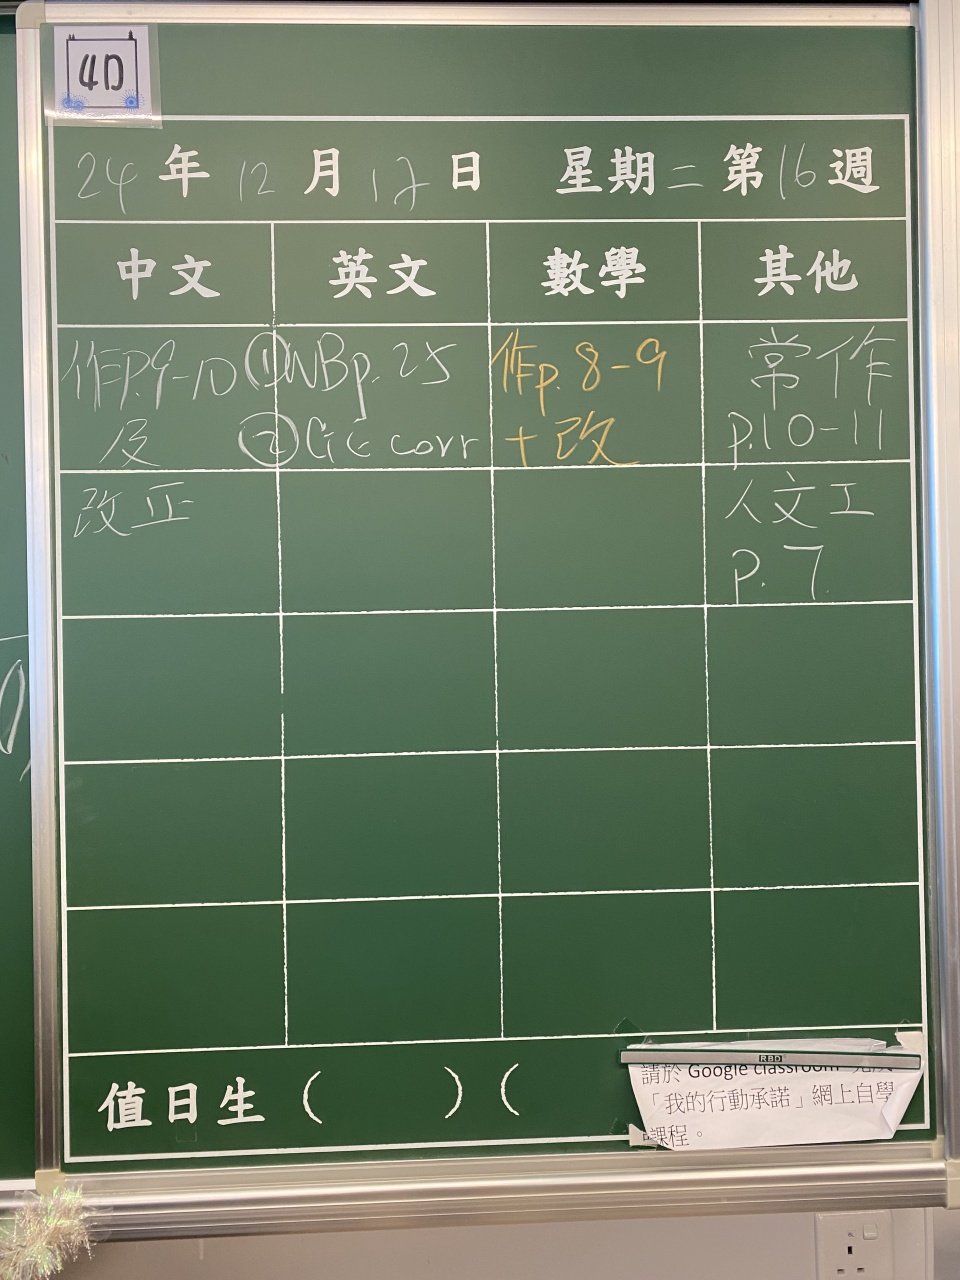 4D
24年12月17日 星期二第16週
中文 英文 數學 其他
作P.9-10 ①NBp.25 作p.8-9 常作
及 ②GE corr +改 p.10-11
改正 人文工
p.7
值日生( )(
請於 Google classroom
「我的行動承諾」網上自學
課程。
RBD